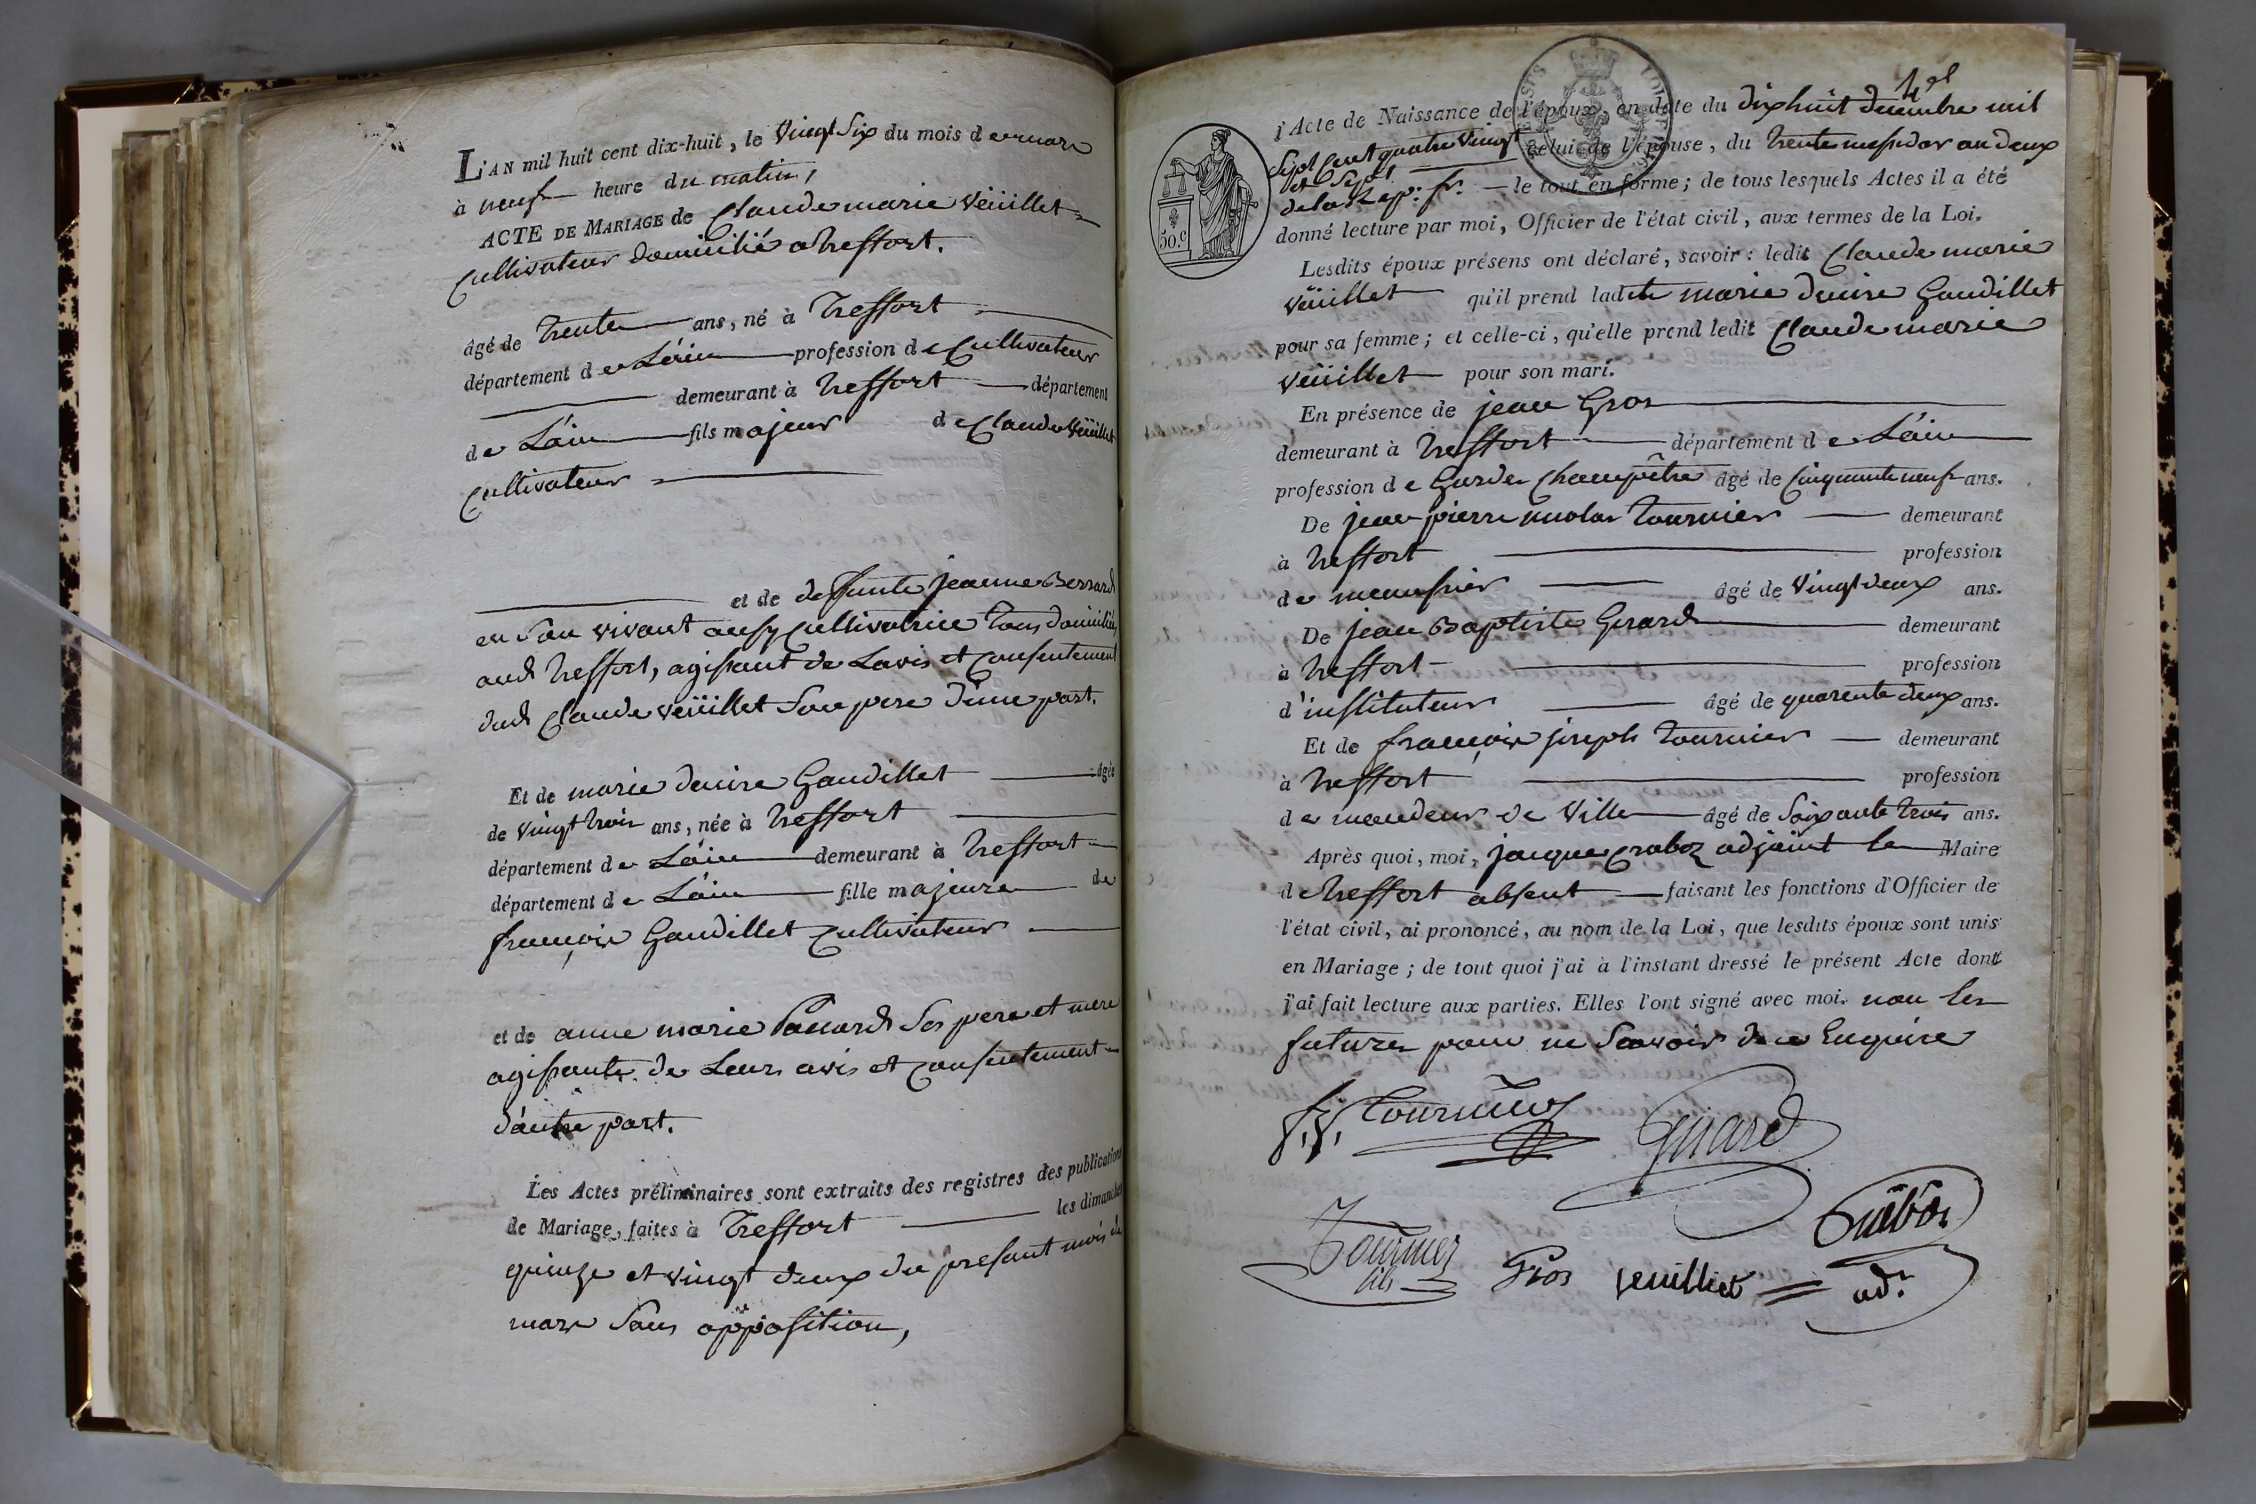 L'AN mil huit cent dix-huit, le vingt Six du mois de mars
à neuf heure du matin,
ACTE DE MARIAGE de Claude marie Veüillet
Cultivateur domicilié a treffort.
âgé de trente ans, né à Treffort
département de L'ain profession de Cultivateur
demeurant à treffort département
de L'ain fils majeur de Claude Veüillet
Cultivateur
et de deffunte jeanne Berrard
en Son vivant aussy Cultivatrice tous domiciliés
aud treffort, agissant de Lavis et Consentement
dud Claude veüillet Son pere d'une part.
Et de marie denise Gaudillet âgée
de vingt trois ans, née à treffort
département de L'ain demeurant à treffort
département de L'ain fille majeure de
françois Gaudillet Cultivateur
et de anne marie Ses pere et mere
agissante de Leurs avis et Consentement
d'autre part.
Les Actes préliminaires sont extraits des registres des publications
de Mariage, faites à Treffort les dimanches
quinze et vingt deux du present mois de
mars Sans opposition,
4 el
l'Acte de Naissance de l'époux, en date du dixhuit decembre mil
Sept Cent quatre vingt
et Sept celui de l'épouse, du trente messidor an deux
de la Rep. fr. le tout en forme; de tous lesquels Actes il a été
50.c
donné lecture par moi, Officier de l'état civil, aux termes de la Loi.
Lesdits époux présens ont déclaré, savoir: ledit Claude marie
veüillet qu'il prend ladite marie denise Gaudillet
pour sa femme; et celle-ci, qu'elle prend ledit Claude marie
veüillet pour son mari.
En présence de jean Gros
demeurant à treffort département de L'ain
profession de Garde Champêtre âgé de Cinquante neuf ans.
De jean pierre nicolas tournier demeurant
à treffort profession
de menusier âgé de vingt deux ans.
De jean Baptiste Girard demeurant
à treffort profession
d'instituteur âgé de quarente deux ans.
Et de françois joseph tournier demeurant
à treffort profession
de mandeur de Ville âgé de Soixante trois ans.
Après quoi, moi, jacque craboz adjoint le Maire
de treffort absent faisant les fonctions d'Officier de
l'état civil, ai prononcé, au nom de la Loi, que lesdits époux sont unis
en Mariage; de tout quoi j'ai à l'instant dressé le présent Acte dont
j'ai fait lecture aux parties. Elles l'ont signé avec moi. non les
futures pour ne Scavoir de ce Enquire
f. j. Tournier
Girard
Tournier
fils
Gros
veuilliet
Craboz
adt